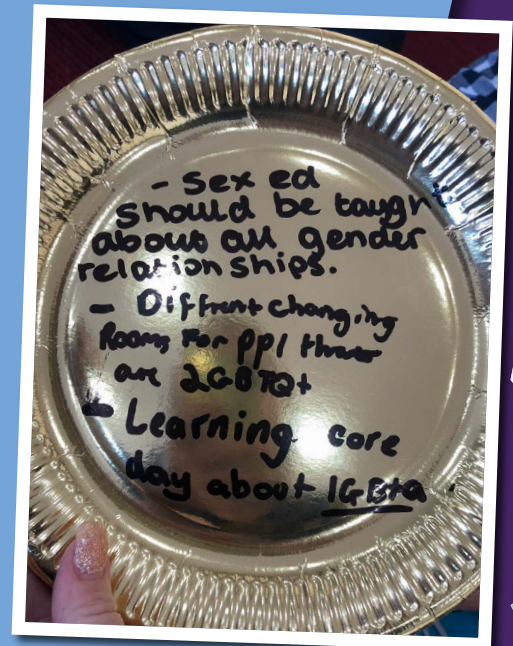 - Sex ed
should be taugh
about all gender
relationships.
- Diffrent changing
Rooms For ppl that
are LGBTQ+
- Learning core
day about LGBTQ.